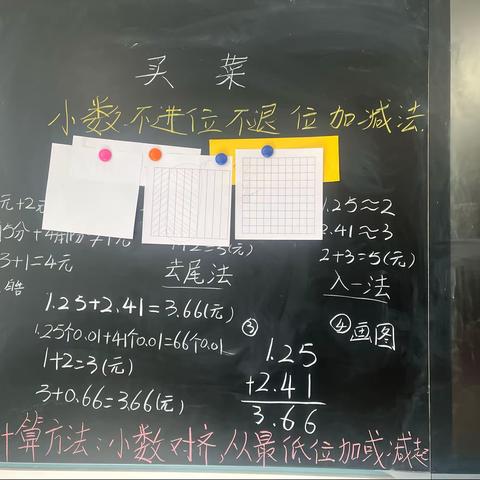 买 菜
小数不进位不退位加减法
元+2元
3+1=4元
1+2=3(元)
去尾法
1.25≈2
2.41≈3
2+3=5(元)
入一法
1.25+2.41=3.66(元)
1.25个0.01+41个0.01=66个0.01
1+2=3(元)
3+0.66=3.66(元)
③
1.25
+2.41
3.66
④画图
计算方法:小数对齐,从最低位加或减起